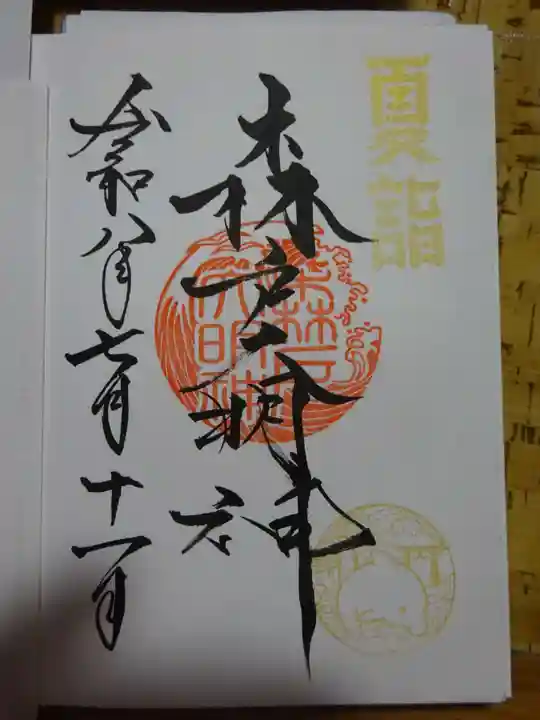 夏詣
森戸大明神
森戸
大明神
令和八年七月十一日